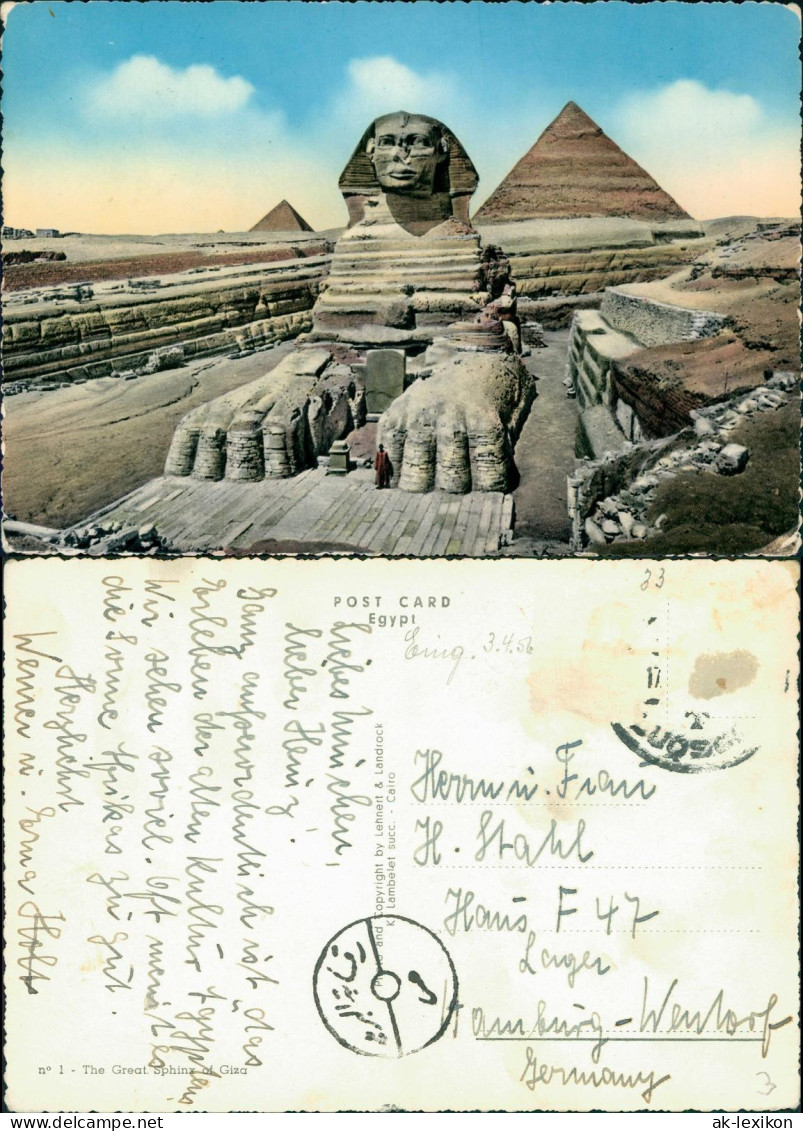 POST CARD
Egypt
Eing. 3.4.56
33
LUQSOR
Liebes Minchen,
lieber Heinz,
Ganz außerordentlich ist das
Erleben der alten Kultur Egyptens
Wir sehen soviel. Oft meint es
die Sonne Afrikas zu gut.
Herzlichst
Werner u. Erna
Herrn u. Frau
H. Stahl
Haus F 47
Lager
Hamburg-Wentorf
Germany
Photo and Copyright by Lehnert & Landrock
K. Lambelet succ. - Cairo
nº 1 - The Great Sphinx of Giza
3
ak-lexikon
ak-lexikon.de